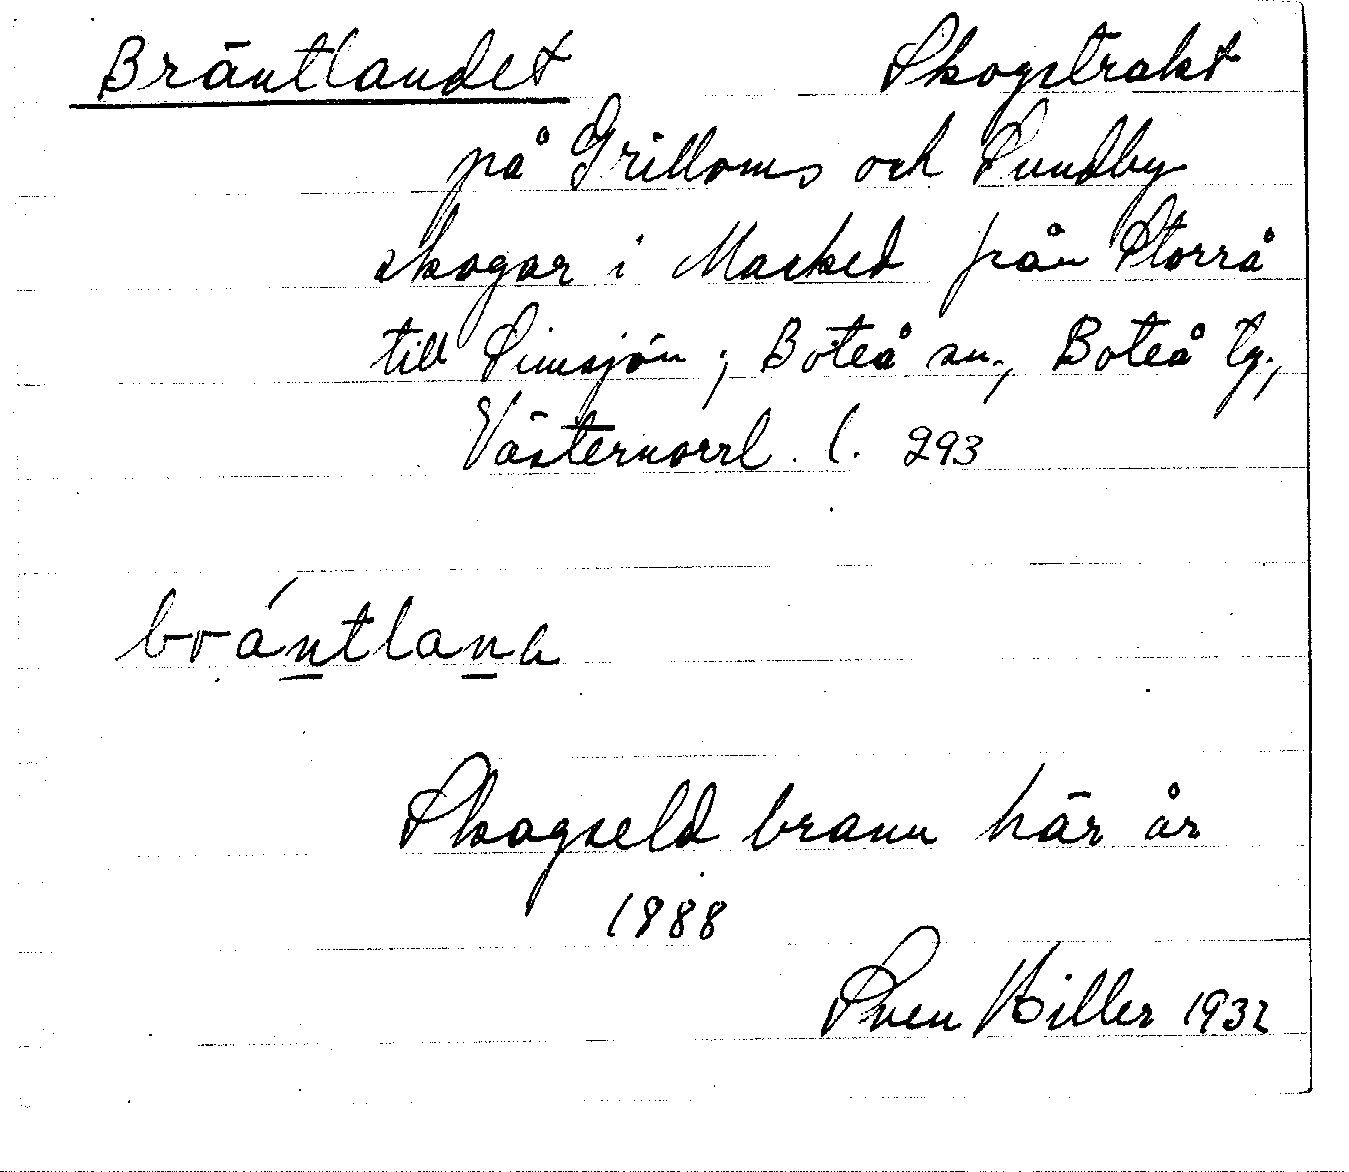 Bräntlandet Skogstrakt
på Grilloms och Sundby
skogar i Masked från Storrå
till Simsjön; Boteå sn., Boteå tg.,
Västernorrl. l. 293
brántlana
Skogseld brann här år
1888
Sven Hiller 1932